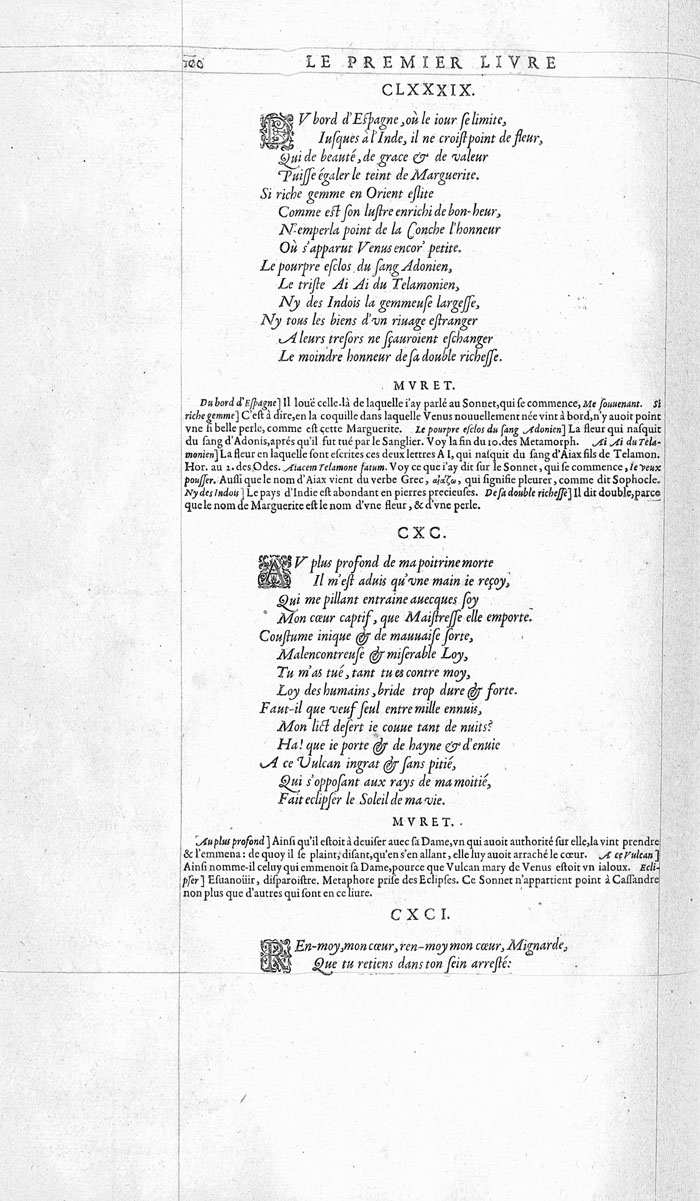 100 LE PREMIER LIVRE
CLXXXIX.
DV bord d'Eſpagne, où le iour ſe limite,
Iuſques à l'Inde, il ne croiſt point de fleur,
Qui de beauté, de grace & de valeur
Puiſſe égaler le teint de Marguerite.
Si riche gemme en Orient eſlite
Comme eſt ſon luſtre enrichi de bon-heur,
N'emperla point de la Conche l'honneur
Où s'apparut Venus encor' petite.
Le pourpre eſclos du ſang Adonien,
Le triſte Ai Ai du Telamonien,
Ny des Indois la gemmeuſe largeſſe,
Ny tous les biens d'vn riuage eſtranger
A leurs treſors ne ſçauroient eſchanger
Le moindre honneur de ſa double richeſſe.
MVRET.
Du bord d'Eſpagne] Il louë celle-là de laquelle i'ay parlé au Sonnet, qui ſe commence, Me ſouuenant. Si
riche gemme] C'eſt à dire, en la coquille dans laquelle Venus nouuellement née vint à bord, n'y auoit point
vne ſi belle perle, comme eſt cette Marguerite. Le pourpre eſclos du ſang Adonien] La fleur qui naſquit
du ſang d'Adonis, aprés qu'il fut tué par le Sanglier. Voy la fin du 10. des Metamorph. Ai Ai du Tela-
monien] La fleur en laquelle ſont eſcrites ces deux lettres A I, qui naſquit du ſang d'Aiax fils de Telamon.
Hor. au 2. des Odes. Aiacem Telamone ſatum. Voy ce que i'ay dit ſur le Sonnet, qui ſe commence, Ie veux
pouſſer. Auſſi que le nom d'Aiax vient du verbe Grec, αἰάζω, qui ſignifie pleurer, comme dit Sophocle.
Ny des Indois] Le pays d'Indie eſt abondant en pierres precieuſes. De ſa double richeſſe] Il dit double, parce
que le nom de Marguerite eſt le nom d'vne fleur, & d'vne perle.
CXC.
AV plus profond de ma poitrine morte
Il m'eſt aduis qu'vne main ie reçoy,
Qui me pillant entraine auecques ſoy
Mon cœur captif, que Maiſtreſſe elle emporte.
Couſtume inique & de mauuaiſe ſorte,
Malencontreuſe & miſerable Loy,
Tu m'as tué, tant tu es contre moy,
Loy des humains, bride trop dure & forte.
Faut-il que veuf ſeul entre mille ennuis,
Mon lict deſert ie couue tant de nuits?
Ha! que ie porte & de hayne & d'enuie
A ce Vulcan ingrat & ſans pitié,
Qui s'oppoſant aux rays de ma moitié,
Fait eclipſer le Soleil de ma vie.
MVRET.
Au plus profond] Ainſi qu'il eſtoit à deuiſer auec ſa Dame, vn qui auoit authorité ſur elle, la vint prendre
& l'emmena: de quoy il ſe plaint, diſant, qu'en s'en allant, elle luy auoit arraché le cœur. A ce Vulcan]
Ainſi nomme-il celuy qui emmenoit ſa Dame, pource que Vulcan mary de Venus eſtoit vn ialoux. Ecli-
pſer] Eſuanoüir, diſparoiſtre. Metaphore priſe des Eclipſes. Ce Sonnet n'appartient point à Caſſandre
non plus que d'autres qui ſont en ce liure.
CXCI.
REn-moy, mon cœur, ren-moy mon cœur, Mignarde,
Que tu retiens dans ton ſein arreſté: